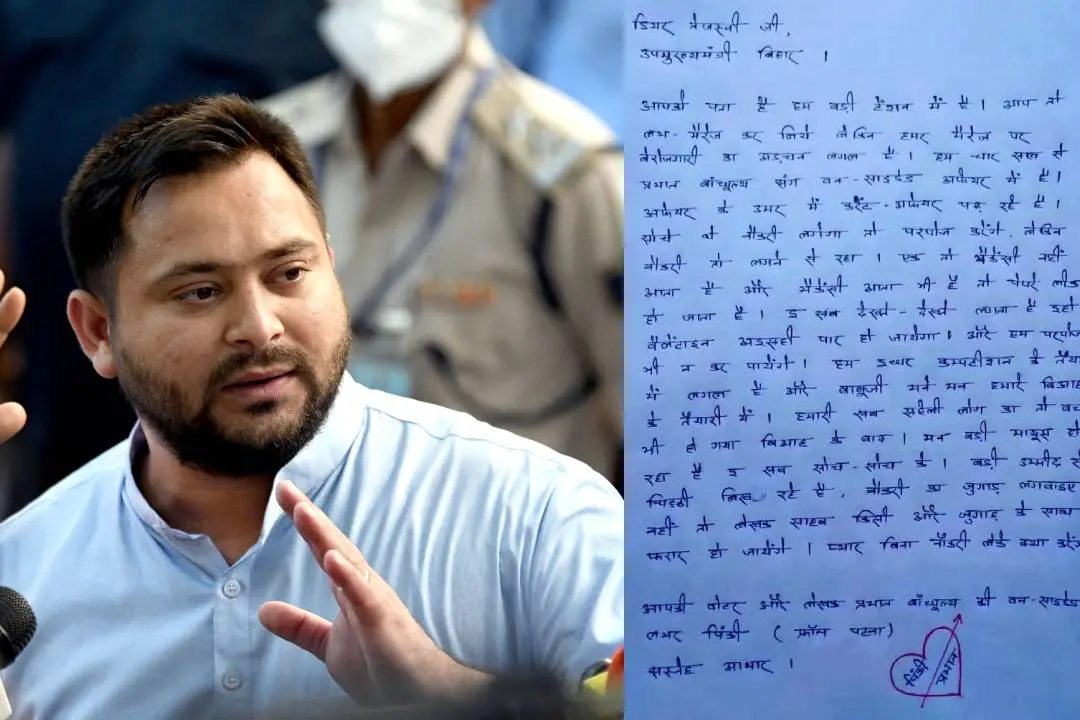 डियर तेजस्वी जी,
उपमुख्यमंत्री बिहार ।
आपको पता है हम बड़ी टेंशन में है । आप तो
लभ - मैरेज कर लिये लेकिन हमर मैरेज पर
बेरोजगारी का अड़चन लगल है । हम चार साल से
प्रभात बांधुल्य संग वन - साइडेड अफेयर में है ।
अफेयर के उमर में करेंट - अफेयर पढ़ रहे है ।
सोचे थे नौकरी लगेगा तो परपोज करेंगे, लेकिन
नौकरी तो लगने से रहा । एक तो भैकेंसी नहीं
आता है और भैकेंसी आता भी है तो पेपरे लीक
हो जाता है । इ सब देखते - देखते लगता है इहो
वैलेंटाइन अइसही पार हो जायेगा । और हम परपोज
भी न कर पायेंगे । हम इधर कम्पटीशन के तैया
में लगल है और बाबूजी मने मन हमारे बिआह
के तैयारी में । हमारी सब सहेली लोग का तो बच्
भी हो गया बिआह के बाद । मन बड़ी मायूस हो
रहा है इ सब सोच - सोच के । बड़ी उम्मीद से
चिट्ठी लिख रहे है, नौकरी का जुगाड़ लगवाइए
नहीं तो लेखक साहब किसी और जुगाड़ के साथ
फरार हो जायेंगे । प्यार बिना नौकरी लेके क्या करेंगे
आपकी वोटर और लेखक प्रभात बांधुल्य की वन - साइडेड
लभर पिंकी ( फ्रॉम पटना )
सस्नेह आभार ।
पिंकी प्रभात